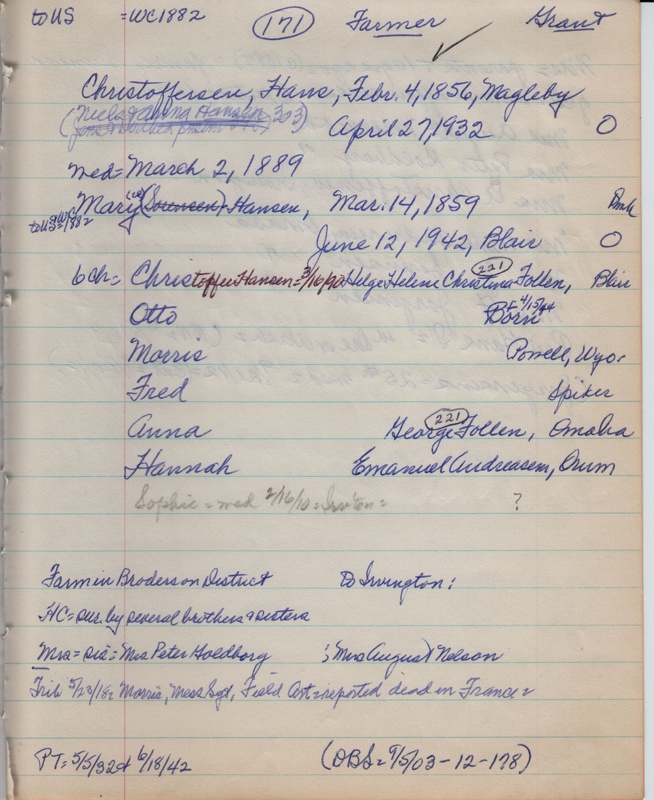 to US = WC1882 (171) Farmer Grant
✓
Christoffersen, Hans, Febr. 4, 1856, Magleby
(Niels & Anna Hansen 303) April 27, 1932 O
med = March 2, 1889
Mary (Sorensen) Hansen, Mar. 14, 1859 Dmk
to US = WC 1882
June 12, 1942, Blair O
6 ch = Christoffer Hansen = 3/16/90 Helge Helene Christina Follen, Blair
221
Otto Born
+ 4/15/
Morris Powell, Wyo.
Fred Spiker
Anna George Follen, Omaha
221
Hannah Emanuel Andreasen, Orum
Sophie = med 2/16/10 = Irvton = ?
Farm in Broderson District To Irvington:
HC = sur. by several brothers & sisters
Mrs = sis = Mrs Peter Holdborg ; Mrs August Nelson
Trib 5/23/18 = Morris, Mess Sgt, Field Art = reported dead in France =
PT = 5/5/32 & 6/18/42 (OBS = 9/5/03 - 12 - 178)